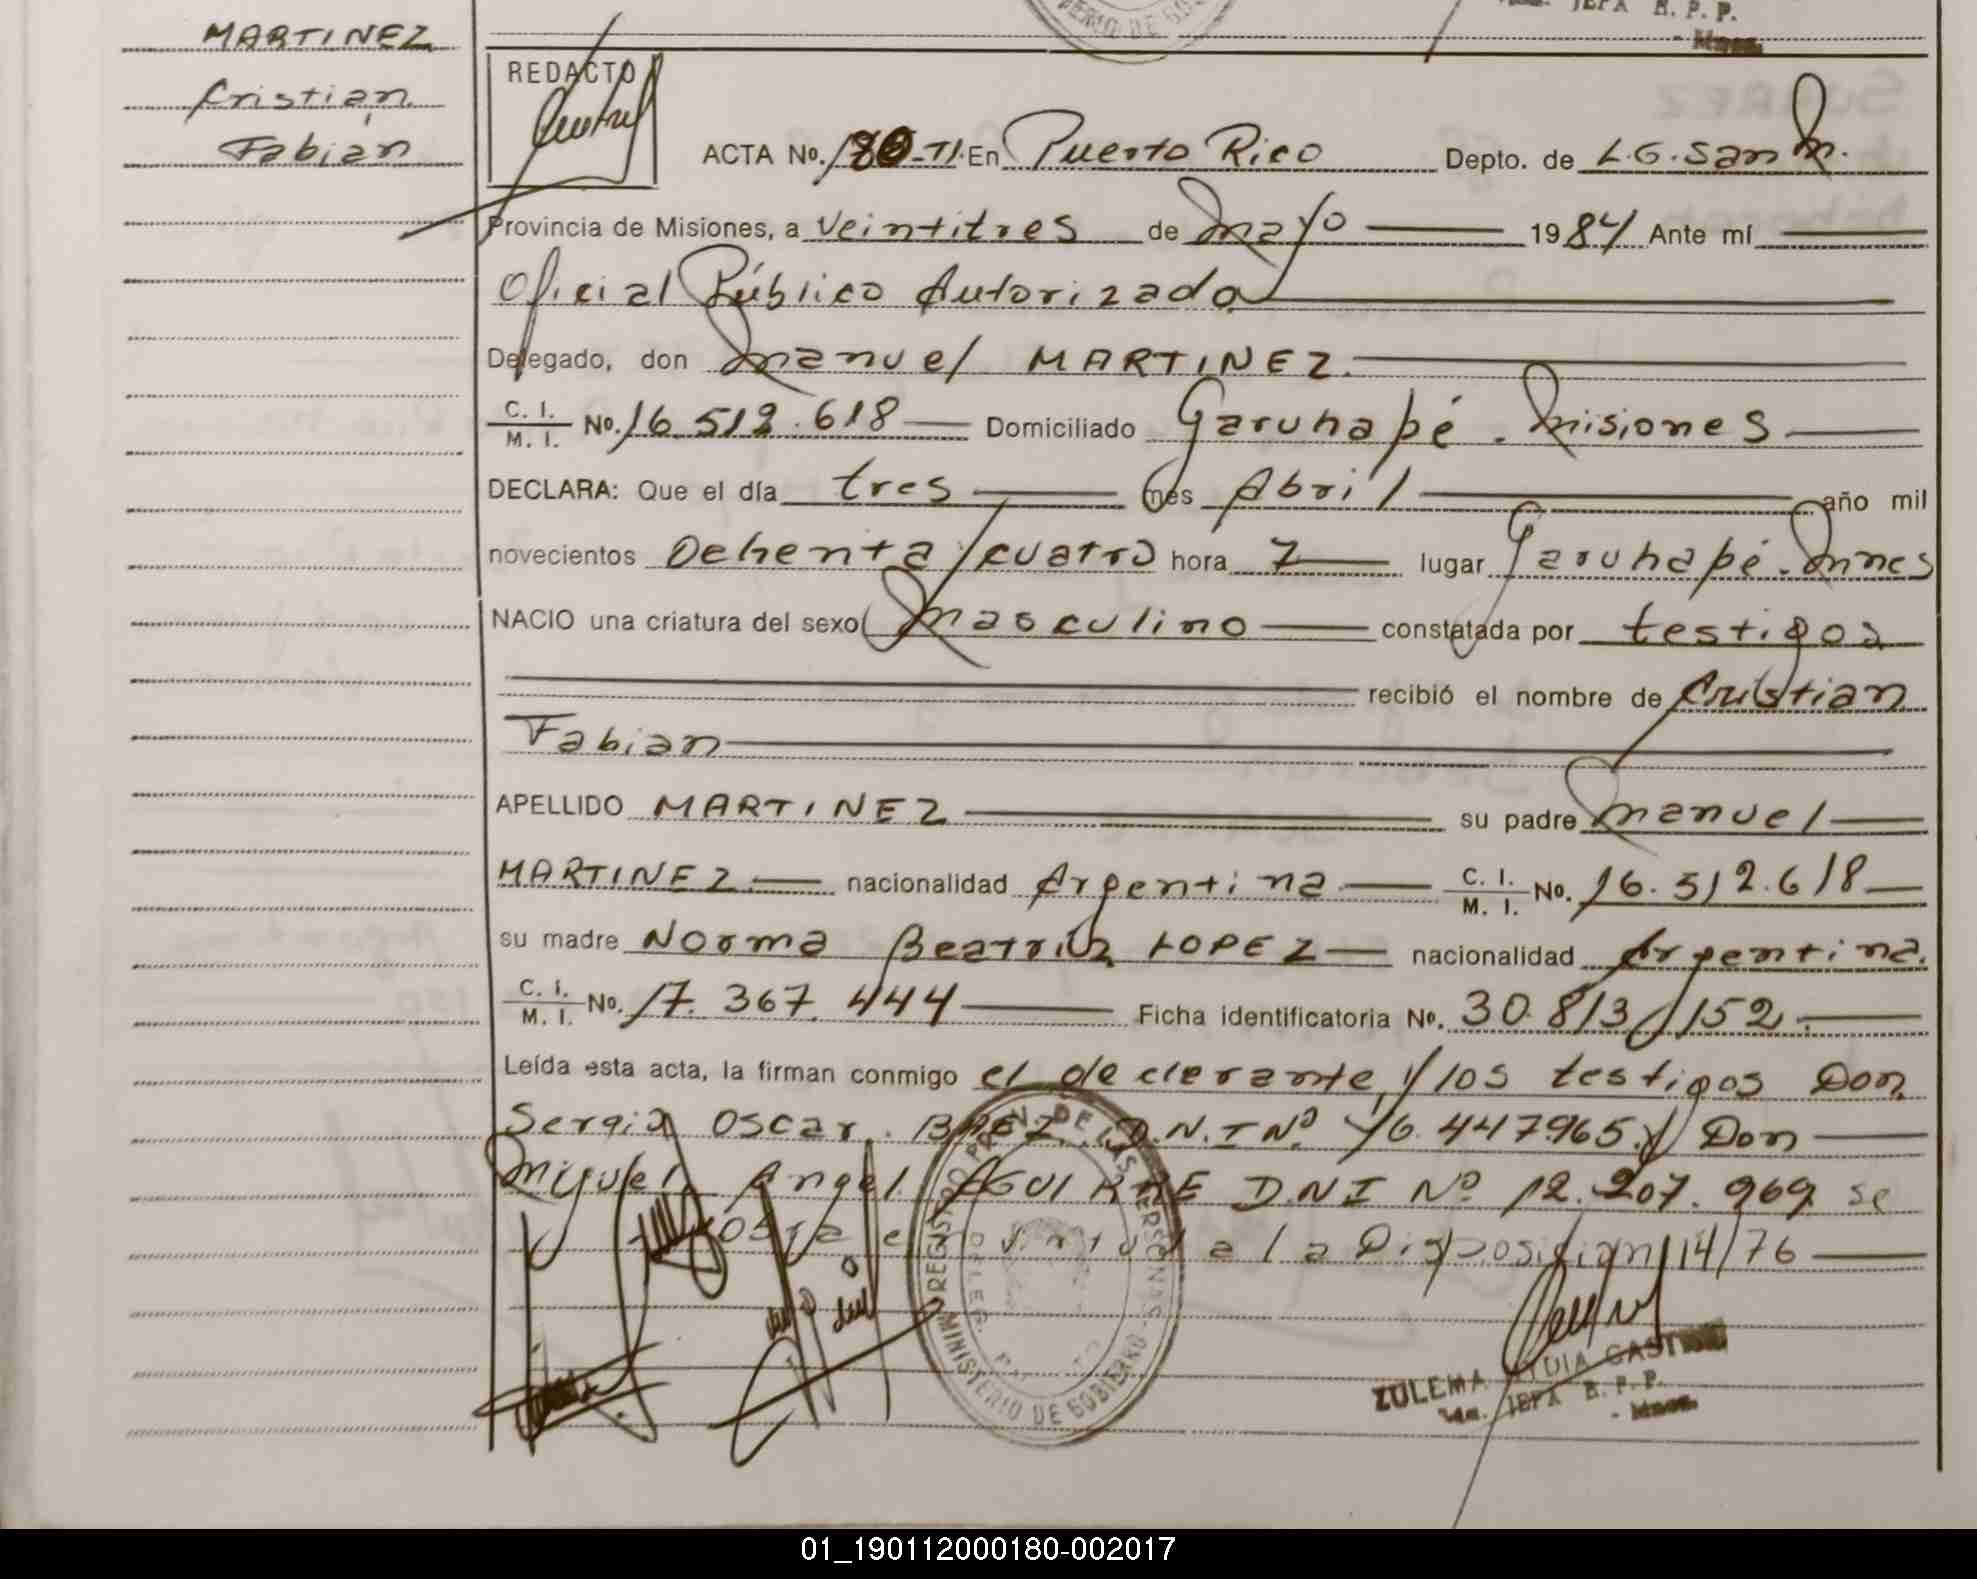 MARTINEZ
Cristian
Fabián
JEFA R. P. P.
- Mnes.
REDACTO
ACTA No. 180-TI. En Puerto Rico Depto. de L.G. San M.
Provincia de Misiones, a veintitres de Mayo 1984 Ante mí
Oficial Público Autorizado
Delegado, don Manuel MARTINEZ.
C. I. / M. I. No. 16.512.618 Domiciliado Garuhapé - Misiones
DECLARA: Que el día tres mes Abril año mil
novecientos Ochenta y cuatro hora 7 lugar Garuhapé - Mnes
NACIO una criatura del sexo Masculino constatada por testigos
recibió el nombre de Cristian
Fabian
APELLIDO MARTINEZ su padre Manuel
MARTINEZ. nacionalidad Argentina C. I. / M. I. No. 16.512.618
su madre Norma Beatriz LOPEZ nacionalidad Argentina.
C. I. / M. I. No. 17.367.444 Ficha identificatoria No. 30.813/152.
Leída esta acta, la firman conmigo el declarante y los testigos Don
Sergio Oscar. BAEZ. D.N.I Nº 16.447.965. y Don
Miguel Angel AGUIRRE D.N.I Nº 12.207.969 se
a la Disposición 114/76
REGISTRO PROV. DE LAS PERSONAS - MINISTERIO DE GOBIERNO
ZULEMA LYDIA
JEFA R. P. P.
- Mnes.
01_190112000180-002017